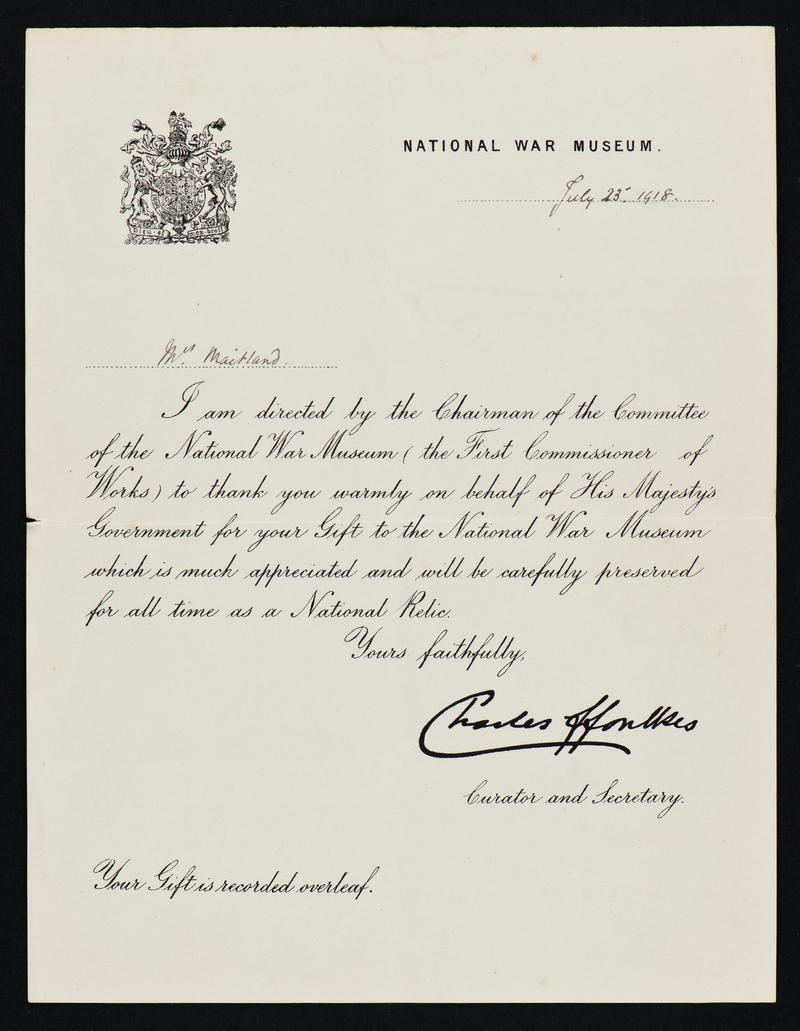 NATIONAL WAR MUSEUM.
July 23 1918.
Dieu et mon droit
Mrs Maitland.
I am directed by the Chairman of the Committee
of the National War Museum ( the First Commissioner of
Works) to thank you warmly on behalf of His Majesty's
Government for your Gift to the National War Museum
which is much appreciated and will be carefully preserved
for all time as a National Relic.
Yours faithfully,
Charles ffoulkes
Curator and Secretary.
Your Gift is recorded overleaf.